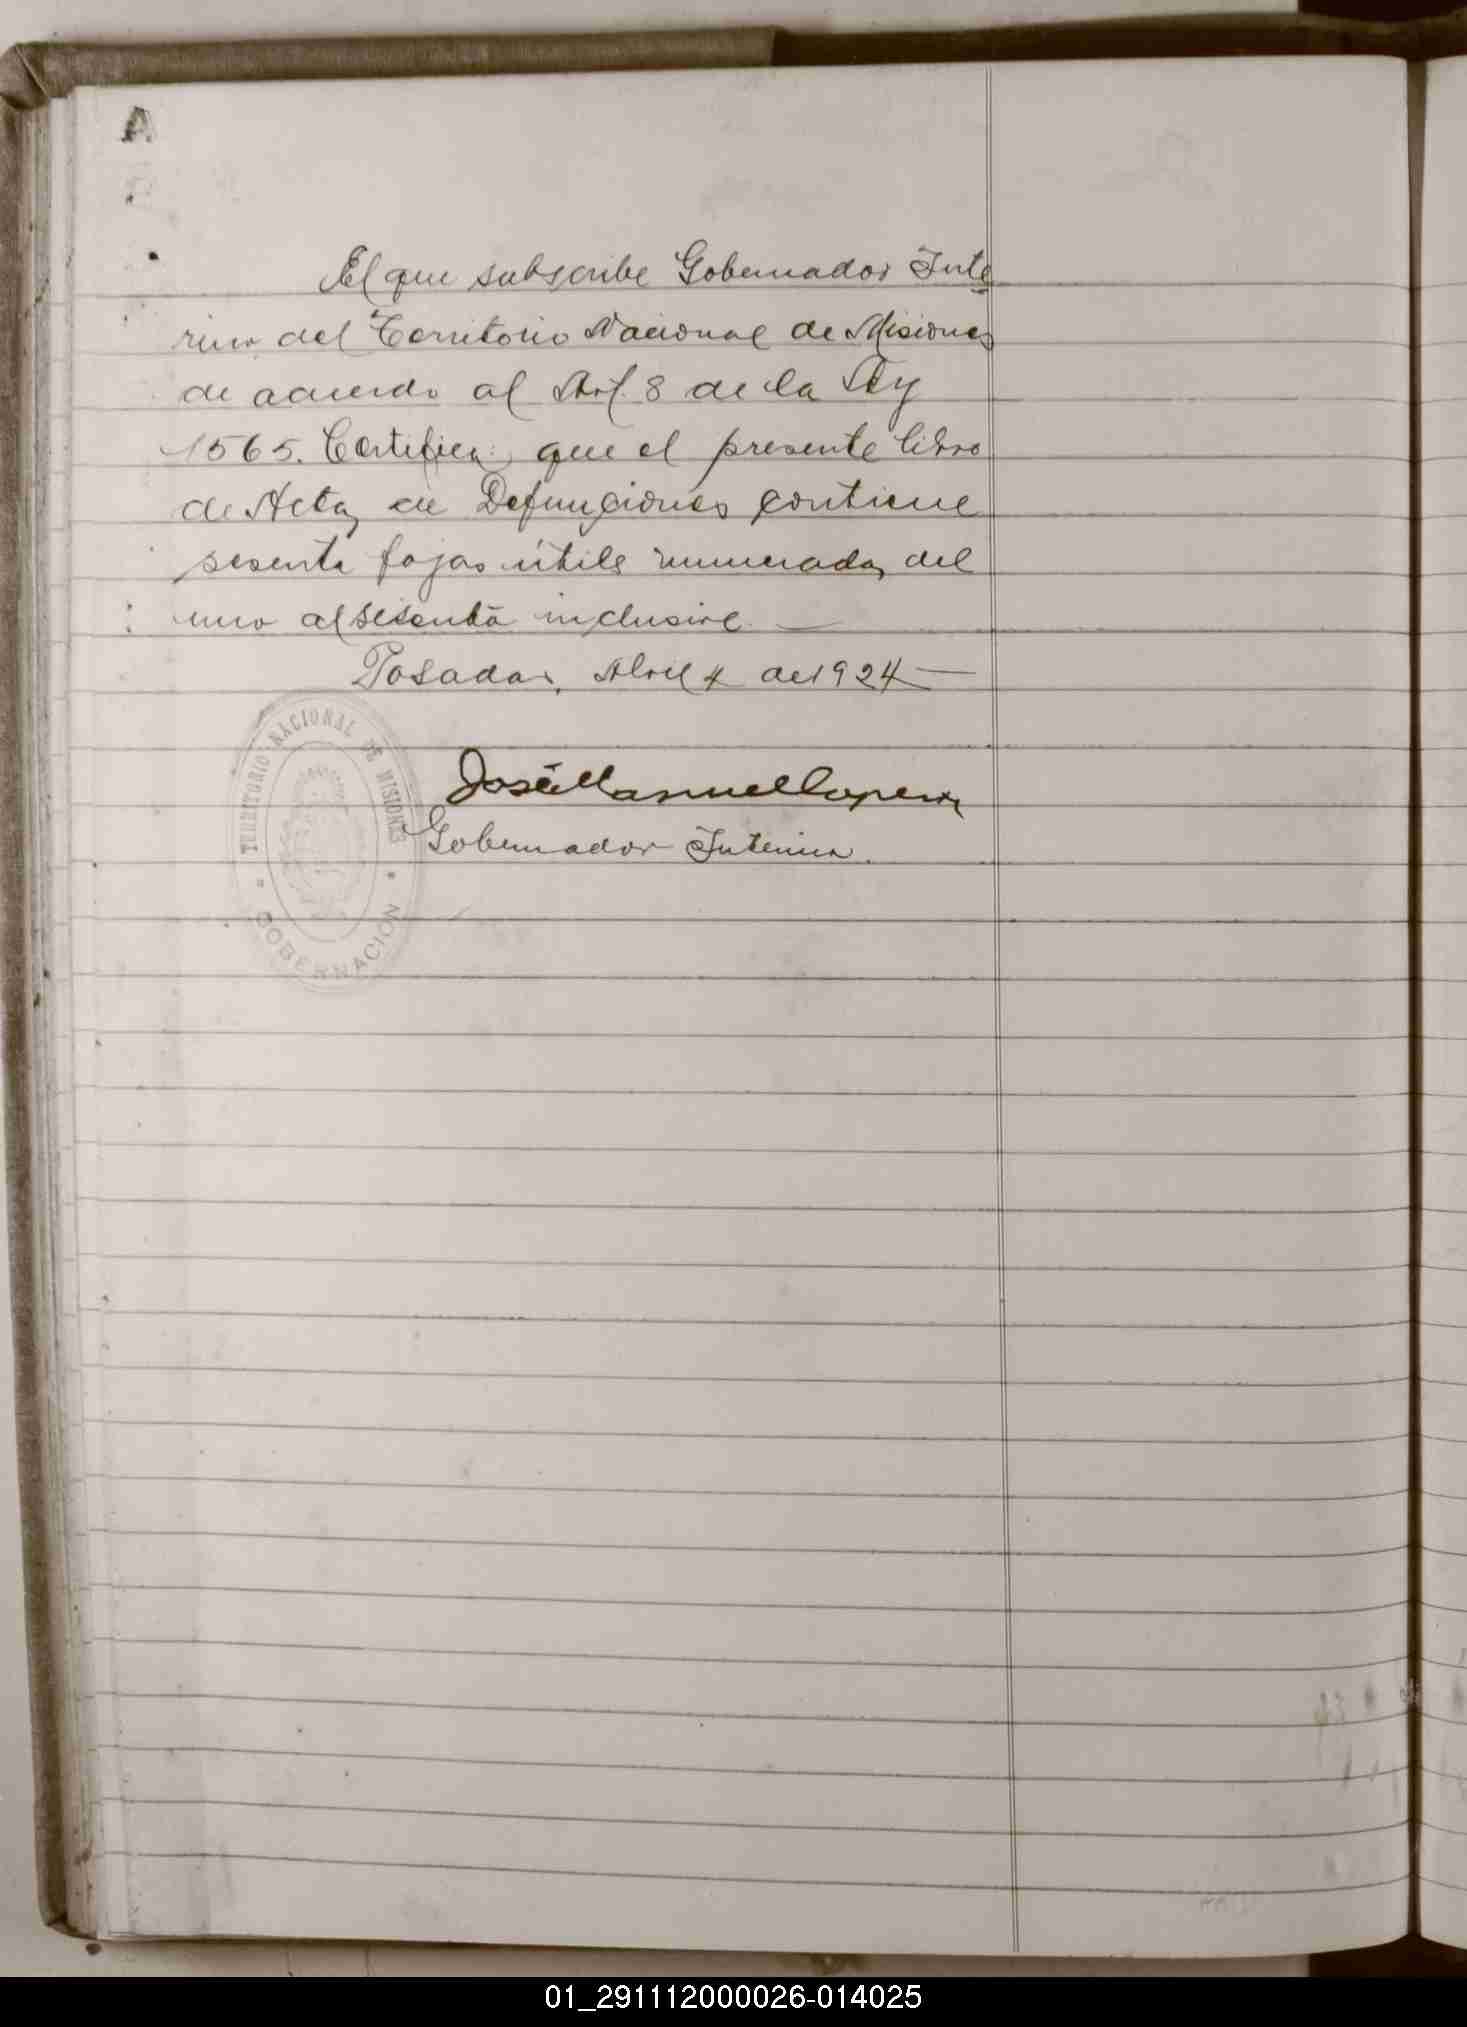 A
El que subscribe Gobernador Inte
rino del Territorio Nacional de Misiones
de acuerdo al Art. 8 de la Ley
1565. Certifica: que el presente libro
de Actas de Defunciones contiene
sesenta fojas útiles numeradas del
uno al sesenta inclusive.—
Posadas, Abril 4 de 1924—
TERRITORIO NACIONAL DE MISIONES
GOBERNACION
José Manuel
Gobernador Interino.
01_291112000026-014025